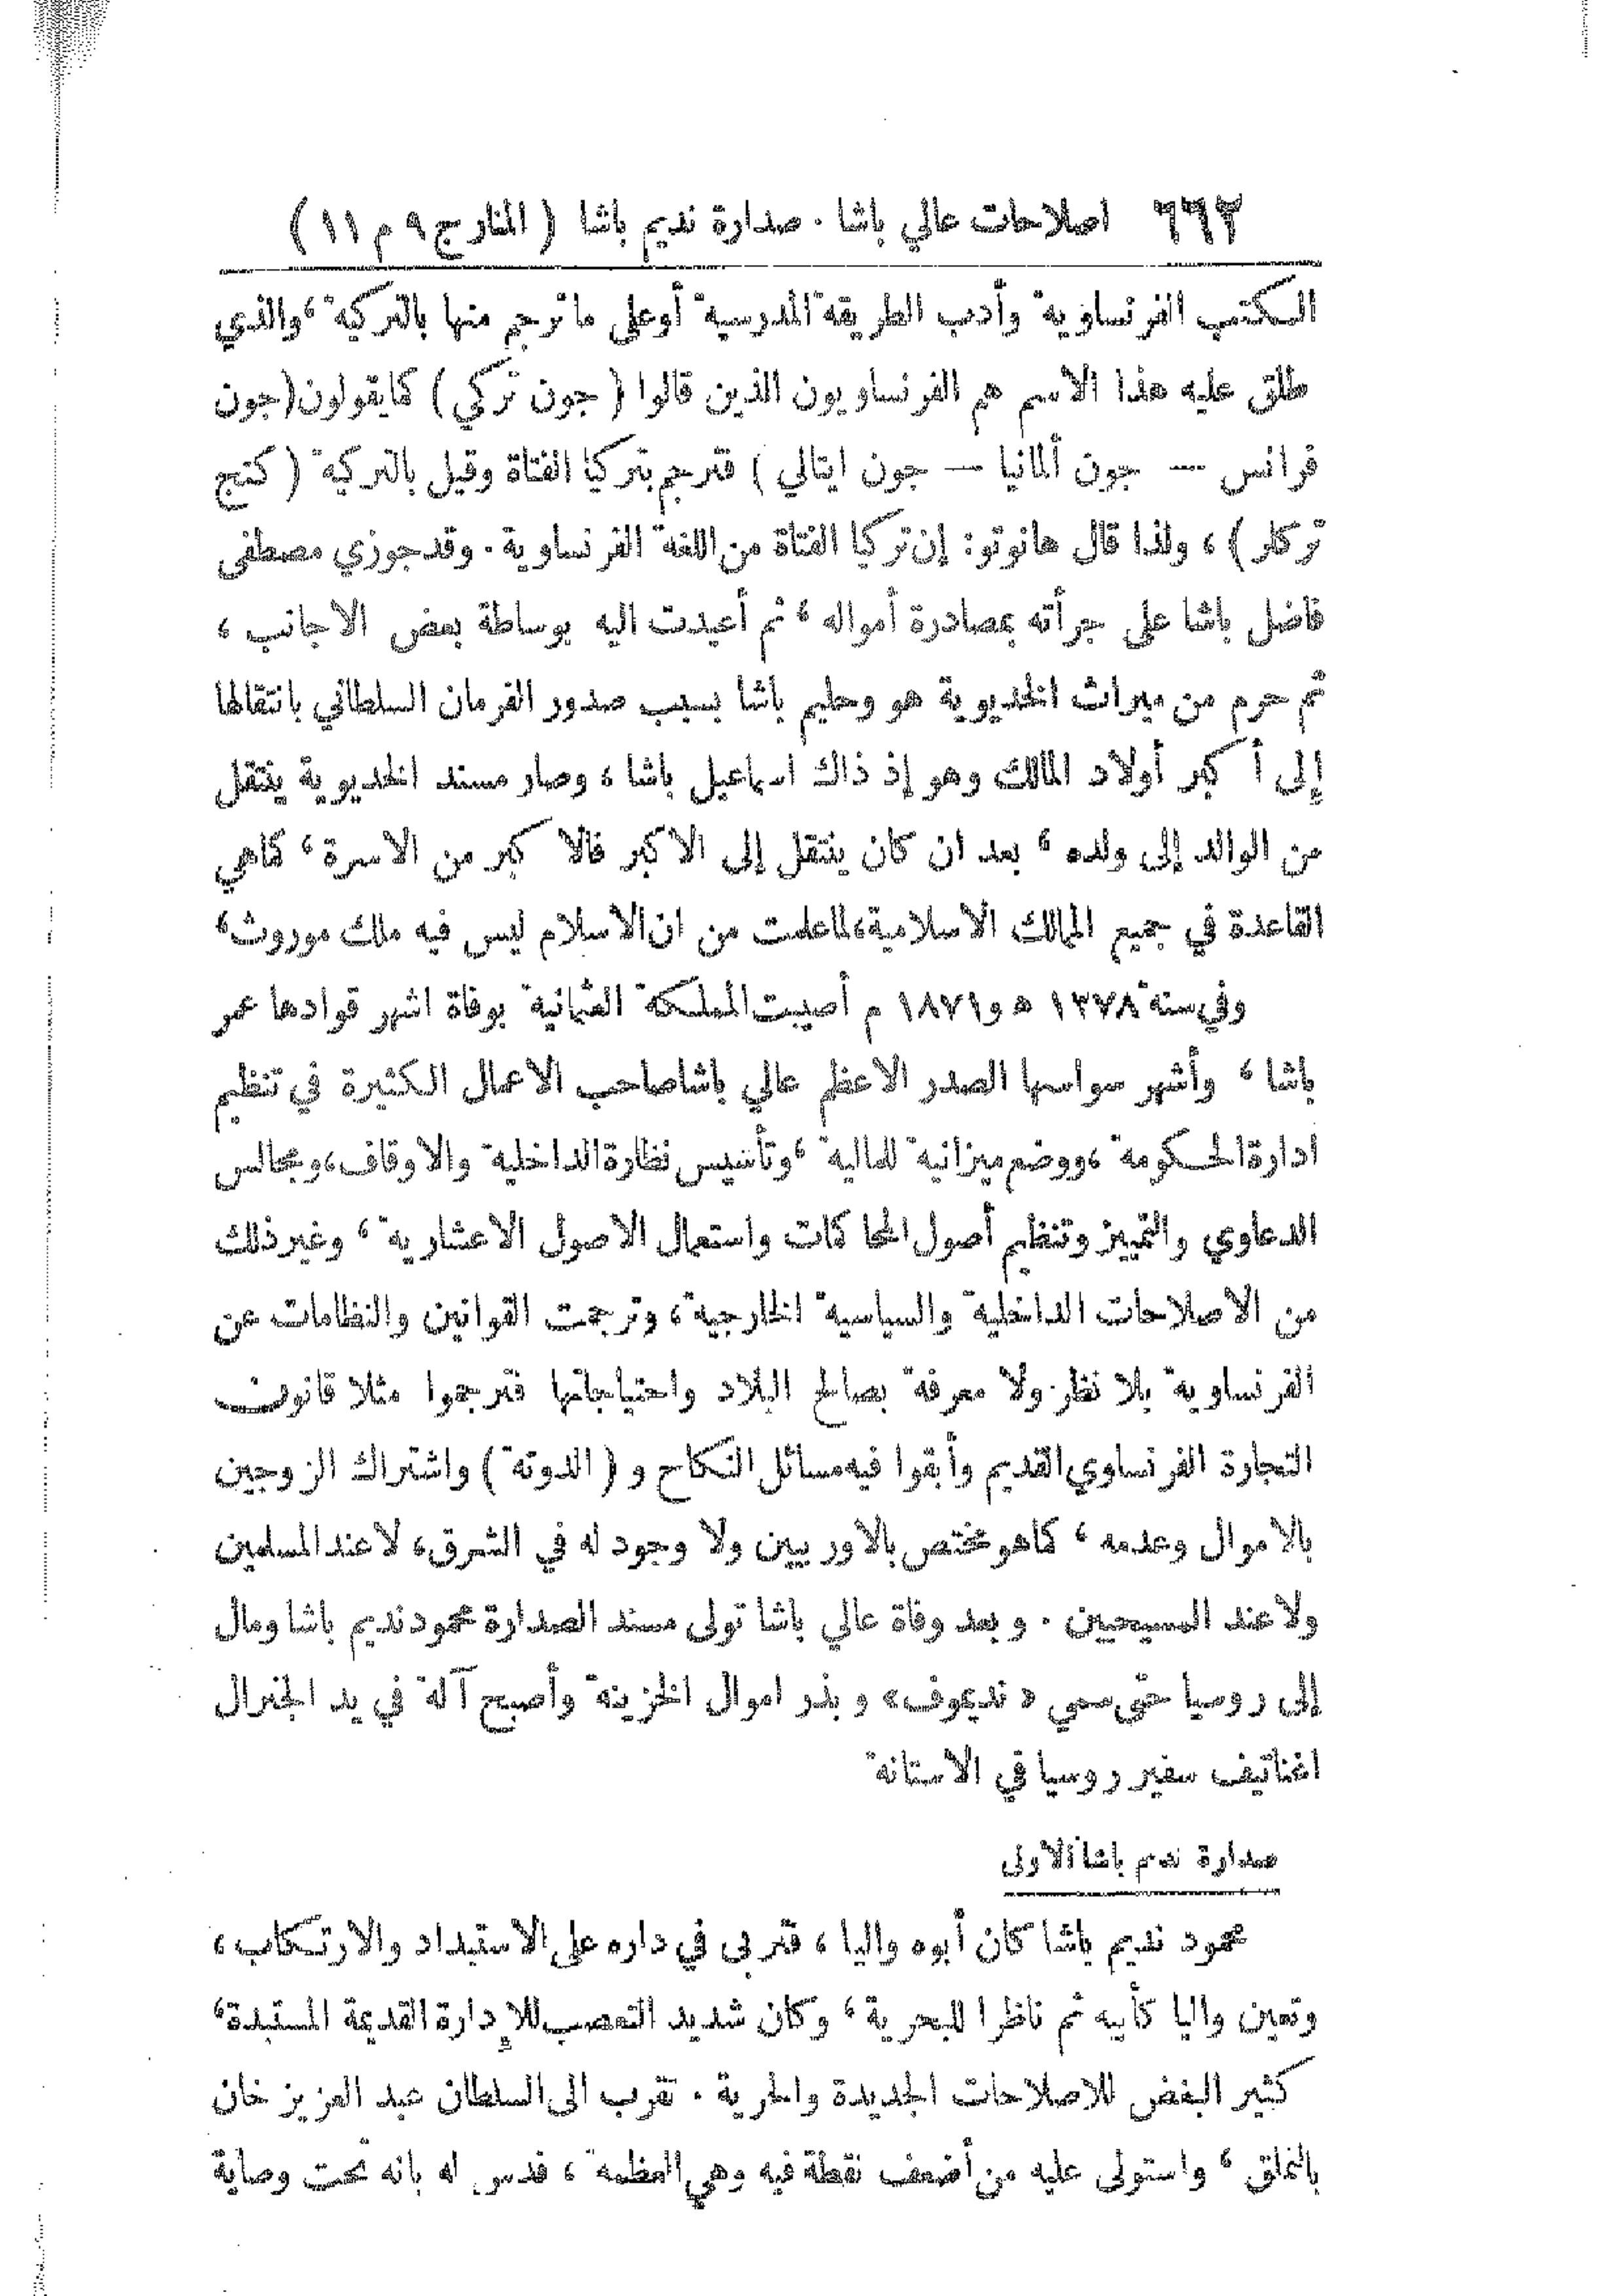 ٦٦٢ اصلاحات عالي باشا . صدارة نديم باشا ( المنار ج ٩ م ١١ )
الكتب الفرنساوية وأدب الطريقة المدرسية أوعلى ماترجم منها بالتركية ، والذي
طلق عليه هذا الاسم هم الفرنساويون الذين قالوا ( جون تركي ) كمايقولون (جون
فرانس — جون ألمانيا — جون ايتالي ) فترجم بتركيا الفتاة وقيل بالتركية ( كنج
تركلر ) ، ولذا قال هانوتو: إن تركيا الفتاة من اللغة الفرنساوية . وقدجوزي مصطفى
فاضل باشا على جرأته بمصادرة أمواله ، ثم أعيدت اليه بوساطة بعض الاجانب ،
ثم حرم من ميراث الخديوية هو وحليم باشا بسبب صدور الفرمان السلطاني بانتقالها
إلى أكبر أولاد المالك وهو إذ ذاك اسماعيل باشا ، وصار مسند الخديوية ينتقل
من الوالد إلى ولده ، بعد ان كان ينتقل إلى الاكبر فالاكبر من الاسرة ، كماهي
القاعدة في جميع الممالك الاسلامية ، لماعلمت من ان الاسلام ليس فيه ملك موروث ،
وفي سنة ١٢٧٨ ه و ١٨٧١ م أصيبت المملكة العثمانية بوفاة اشهر قوادها عمر
باشا ، وأشهر سواسها الصدر الاعظم عالي باشا صاحب الاعمال الكثيرة في تنظيم
ادارة الحكومة ، ووضع ميزانية للمالية ، وتأسيس نظارة الداخلية والاوقاف ، ومجالس
الدعاوي والتمييز وتنظيم أصول المحاكمات واستعمال الاصول الاعشارية ، وغير ذلك
من الاصلاحات الداخلية والسياسية الخارجية ، وترجمت القوانين والنظامات عن
الفرنساوية بلا نظر ولا معرفة بصالح البلاد واحتياجاتها فترجموا مثلا قانون
التجارة الفرنساوي القديم وأبقوا فيه مسائل النكاح و ( الدوتة ) واشتراك الزوجين
بالاموال وعدمه ، كماهو مختص بالاوربيين ولا وجود له في الشرق ، لا عند المسلمين
ولاعند المسيحيين . وبعد وفاة عالي باشا تولى مسند الصدارة محمود نديم باشا ومال
إلى روسيا حتى سمي « نديموف » وبذر اموال الخزينة وأصبح آلة في يد الجنرال
اغناتيف سفير روسيا في الاستانة
صدارة نديم باشا الاولى
محمود نديم باشا كان أبوه واليا ، فتربى في داره على الاستبداد والارتكاب ،
وتعين واليا كأبيه ثم ناظرا للبحرية ، وكان شديد التعصب للإدارة القديمة المستبدة ،
كثير البغض للاصلاحات الجديدة والحرية . تقرب الى السلطان عبد العزيز خان
بالتملق ، واستولى عليه من أضعف نقطة فيه وهي العظمة ، فدس له بانه تحت وصاية